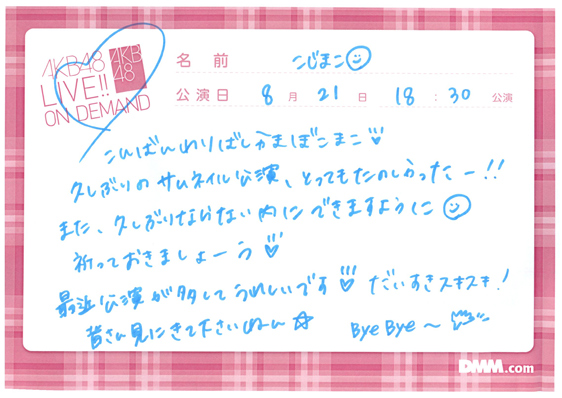 AKB48
LIVE!!
ON DEMAND
AKB
48
名 前 こじまこ
公演日 8 月 21 日 18 : 30 公演
こんばんわりばしかまぼこまこ
久しぶりのサムネイル公演、とってもたのしかったー!!
また、久しぶりならない内にできますように
祈っておきましょーう
最近公演が多してうれしいです だいすきスキスキ!
皆さん見にきて下さいねん☆ Bye Bye〜
DMM.com